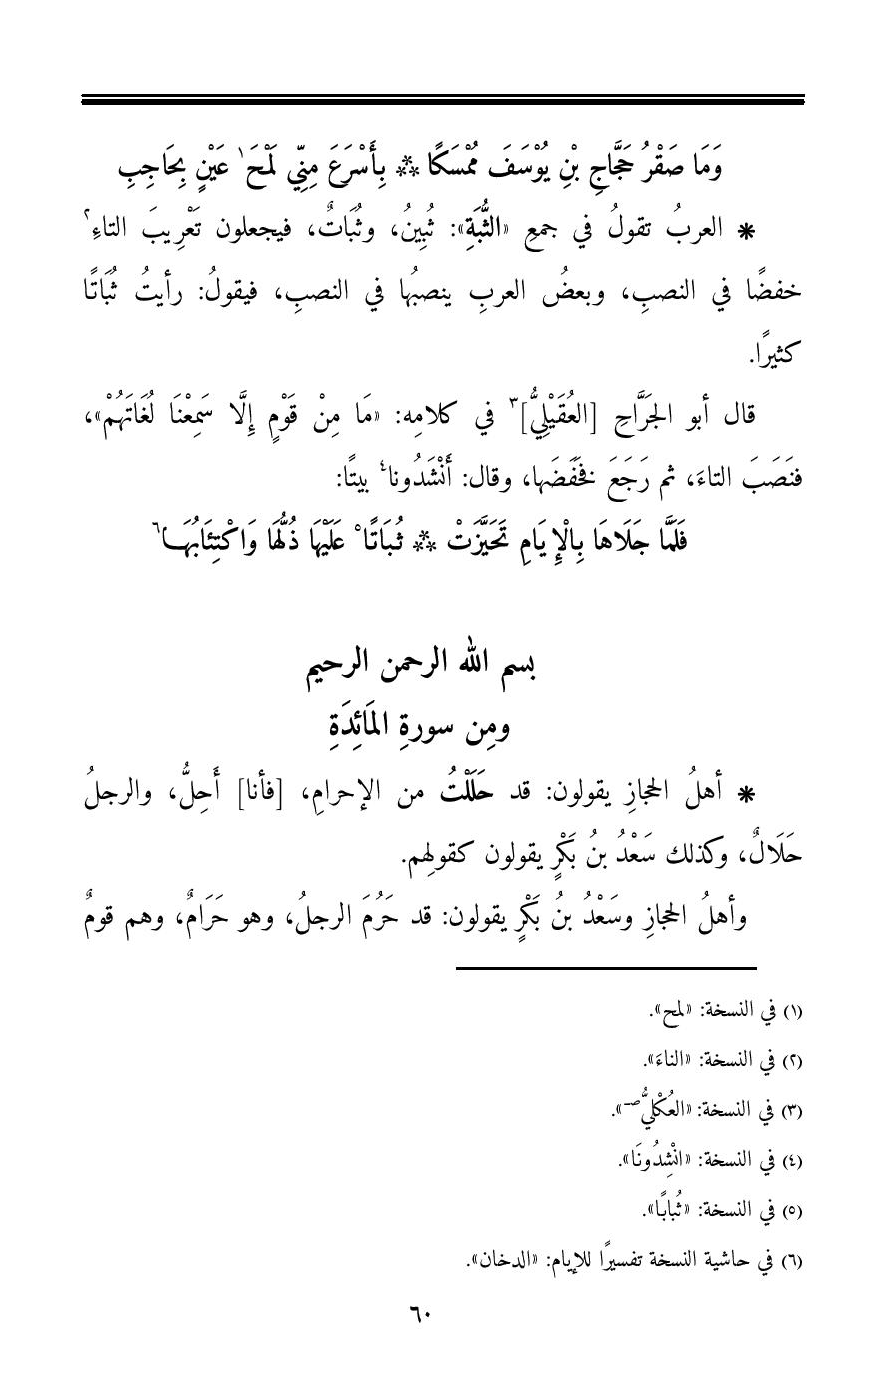 وَمَا صَقْرُ حَجَّاجِ بْنِ يُوْسَفَ مُمْسَكًا ** بِأَسْرَعَ مِنِّي لَمْحَ١ عَيْنٍ بِحَاجِبِ
* العربُ تقولُ في جمعِ «الثُّبَةِ»: ثُبِينُ، وثُبَاتٌ، فيجعلون تَعْرِيبَ التاءِ٢
خفضًا في النصبِ، وبعضُ العربِ ينصبُها في النصبِ، فيقولُ: رأيتُ ثُبَاتًا
كثيرًا.
قال أبو الجَرَّاحِ [العُقَيْلِيُّ]٣ في كلامِه: «مَا مِنْ قَوْمٍ إِلَّا سَمِعْنَا لُغَاتَهُمْ»،
فنَصَبَ التاءَ، ثم رَجَعَ فخَفَضَها، وقال: أَنْشَدُونا٤ بيتًا:
فَلَمَّا جَلَاهَا بِالْإِيَامِ تَحَيَّزَتْ ** ثُبَاتًا٥ عَلَيْهَا ذُلُّهَا وَاكْتِئَابُهَا٦
بسم الله الرحمن الرحيم
ومِن سورةِ المَائِدَةِ
* أهلُ الحجازِ يقولون: قد حَلَلْتُ من الإحرامِ، [فأنا] أَحِلُّ، والرجلُ
حَلَالٌ، وكذلك سَعْدُ بنُ بَكْرٍ يقولون كقولِهم.
وأهلُ الحجازِ وسَعْدُ بنُ بَكْرٍ يقولون: قد حَرُمَ الرجلُ، وهو حَرَامٌ، وهم قومٌ
(١) في النسخة: «لمح».
(٢) في النسخة: «الناءَ».
(٣) في النسخة: «العُكْليُّ صـ».
(٤) في النسخة: «انْشِدُونَا».
(٥) في النسخة: «ثُبابًا».
(٦) في حاشية النسخة تفسيرًا للإيام: «الدخان».
٦٠